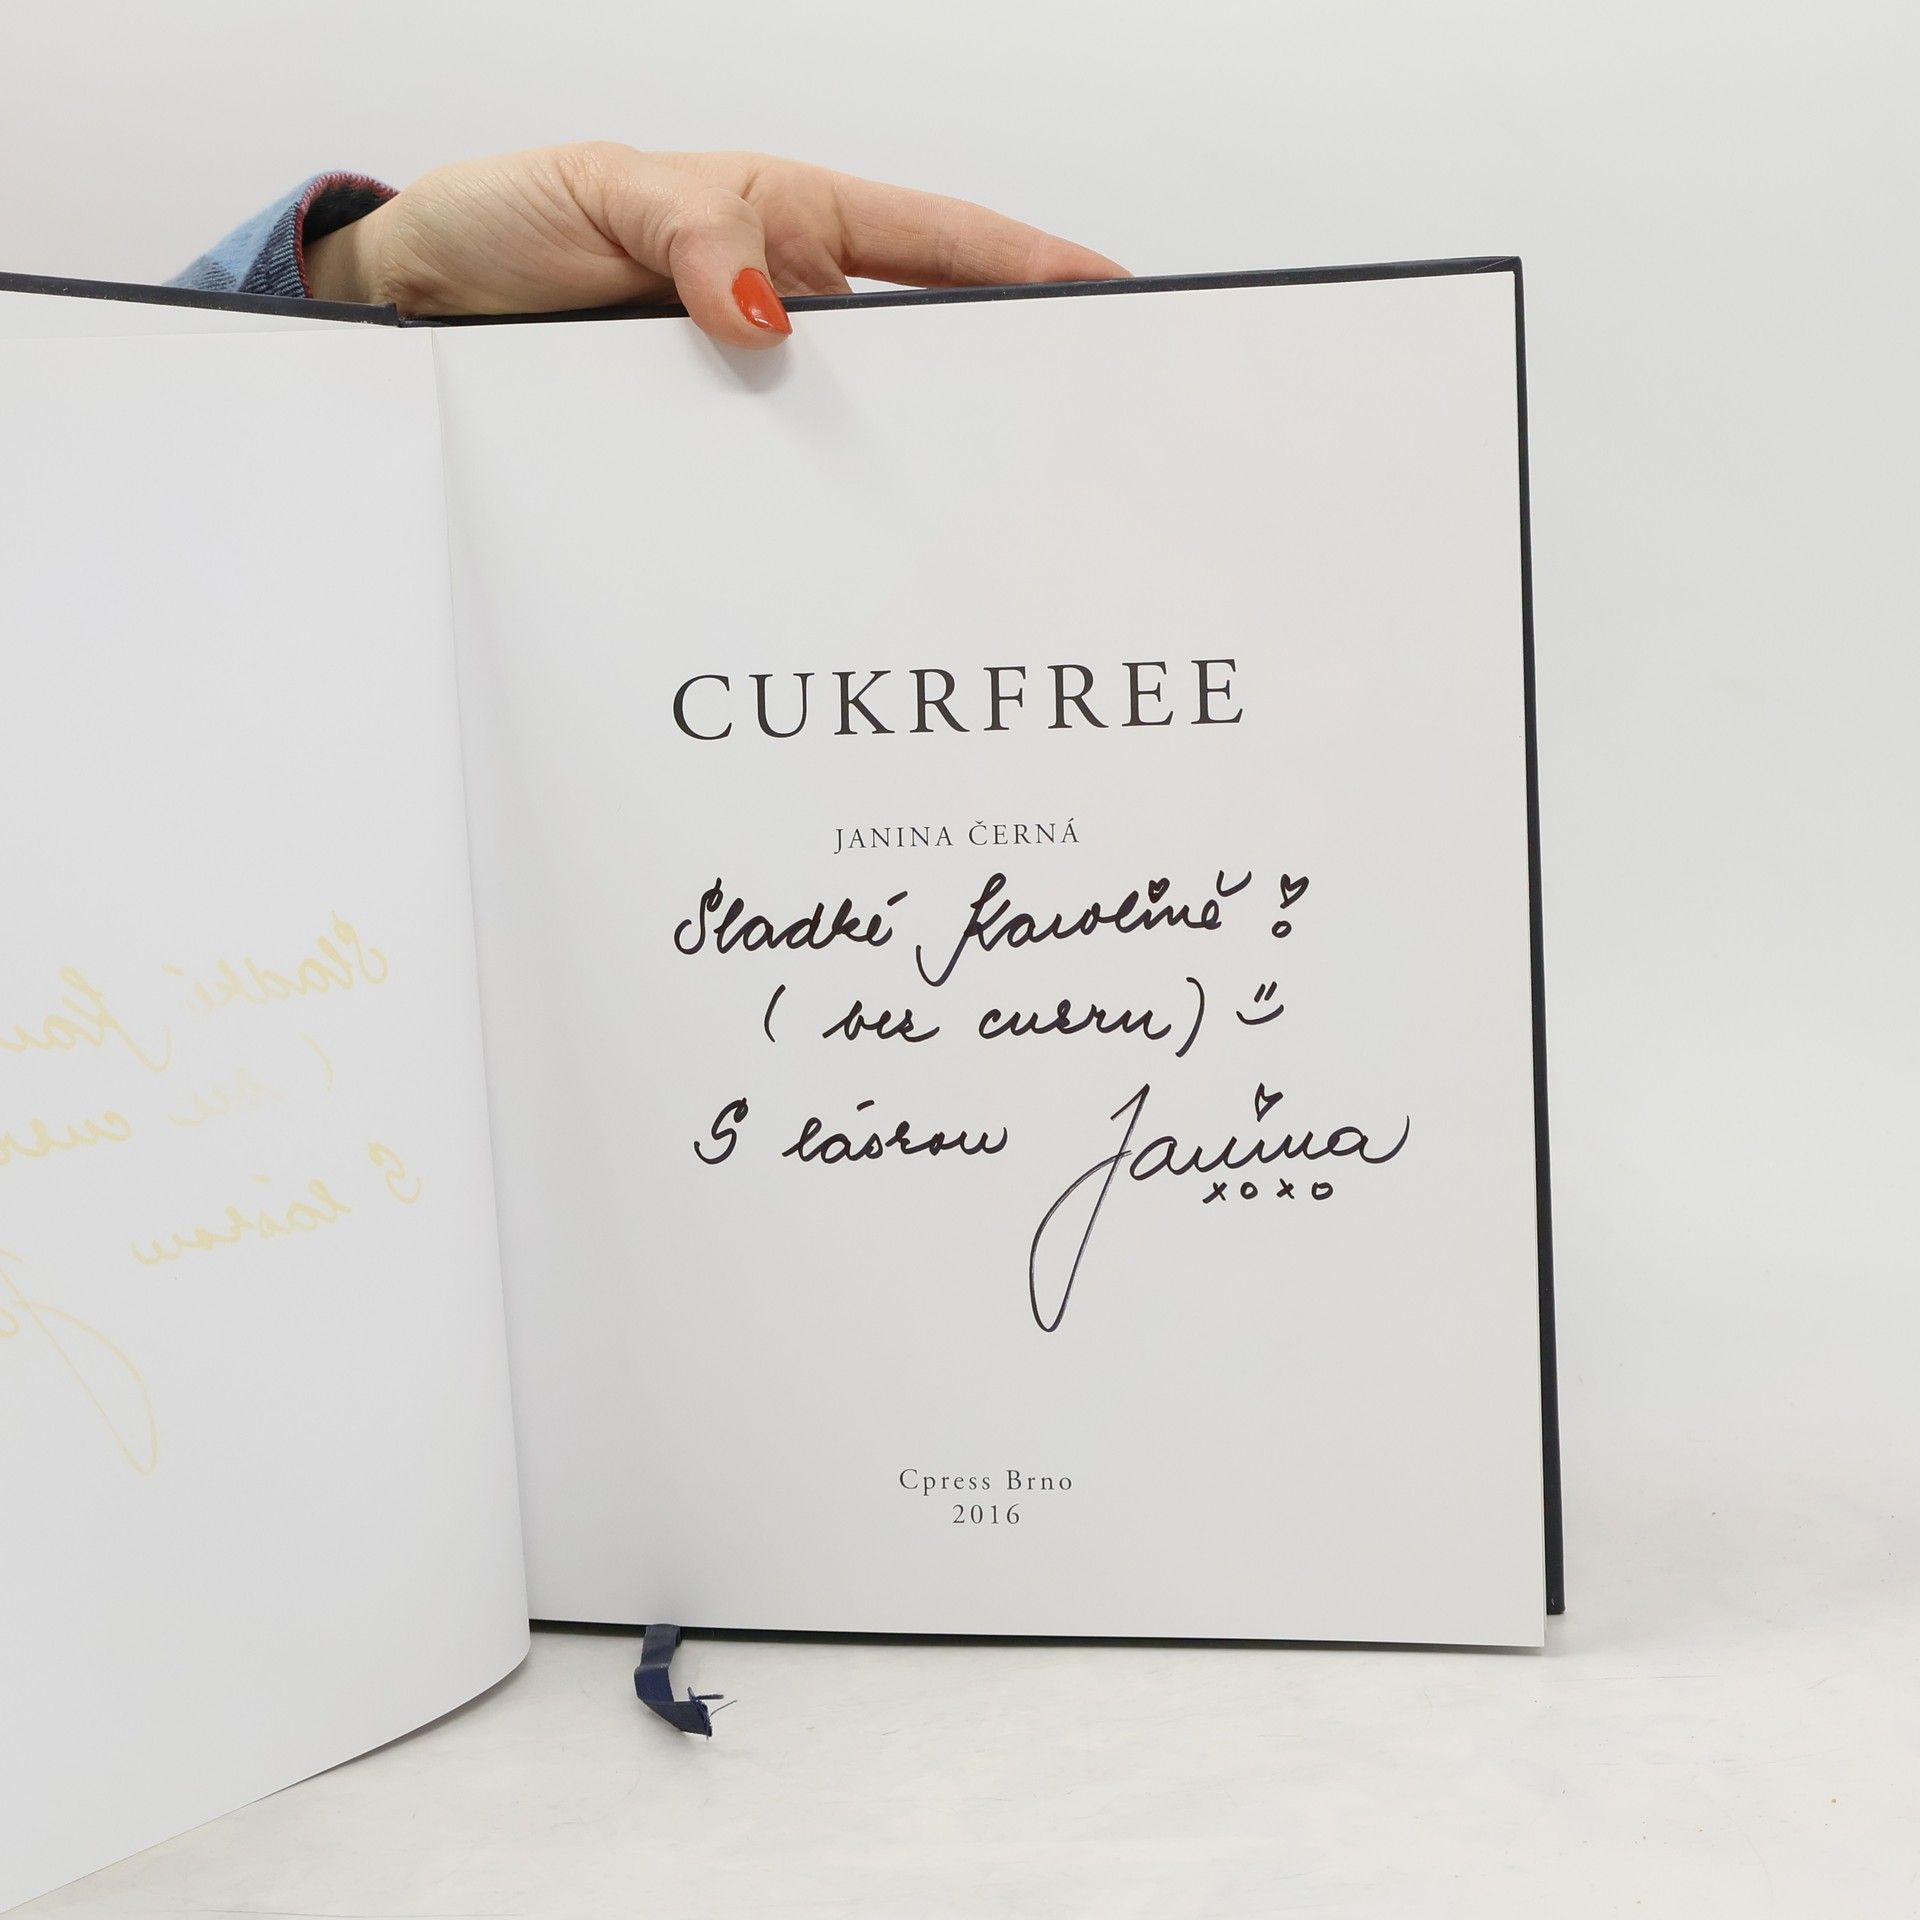 CUKRFREE
JANINA ČERNÁ
Sladké Karolíně!
(bez cukru) ü
S láskou Janina
xoxo
Cpress Brno
2016